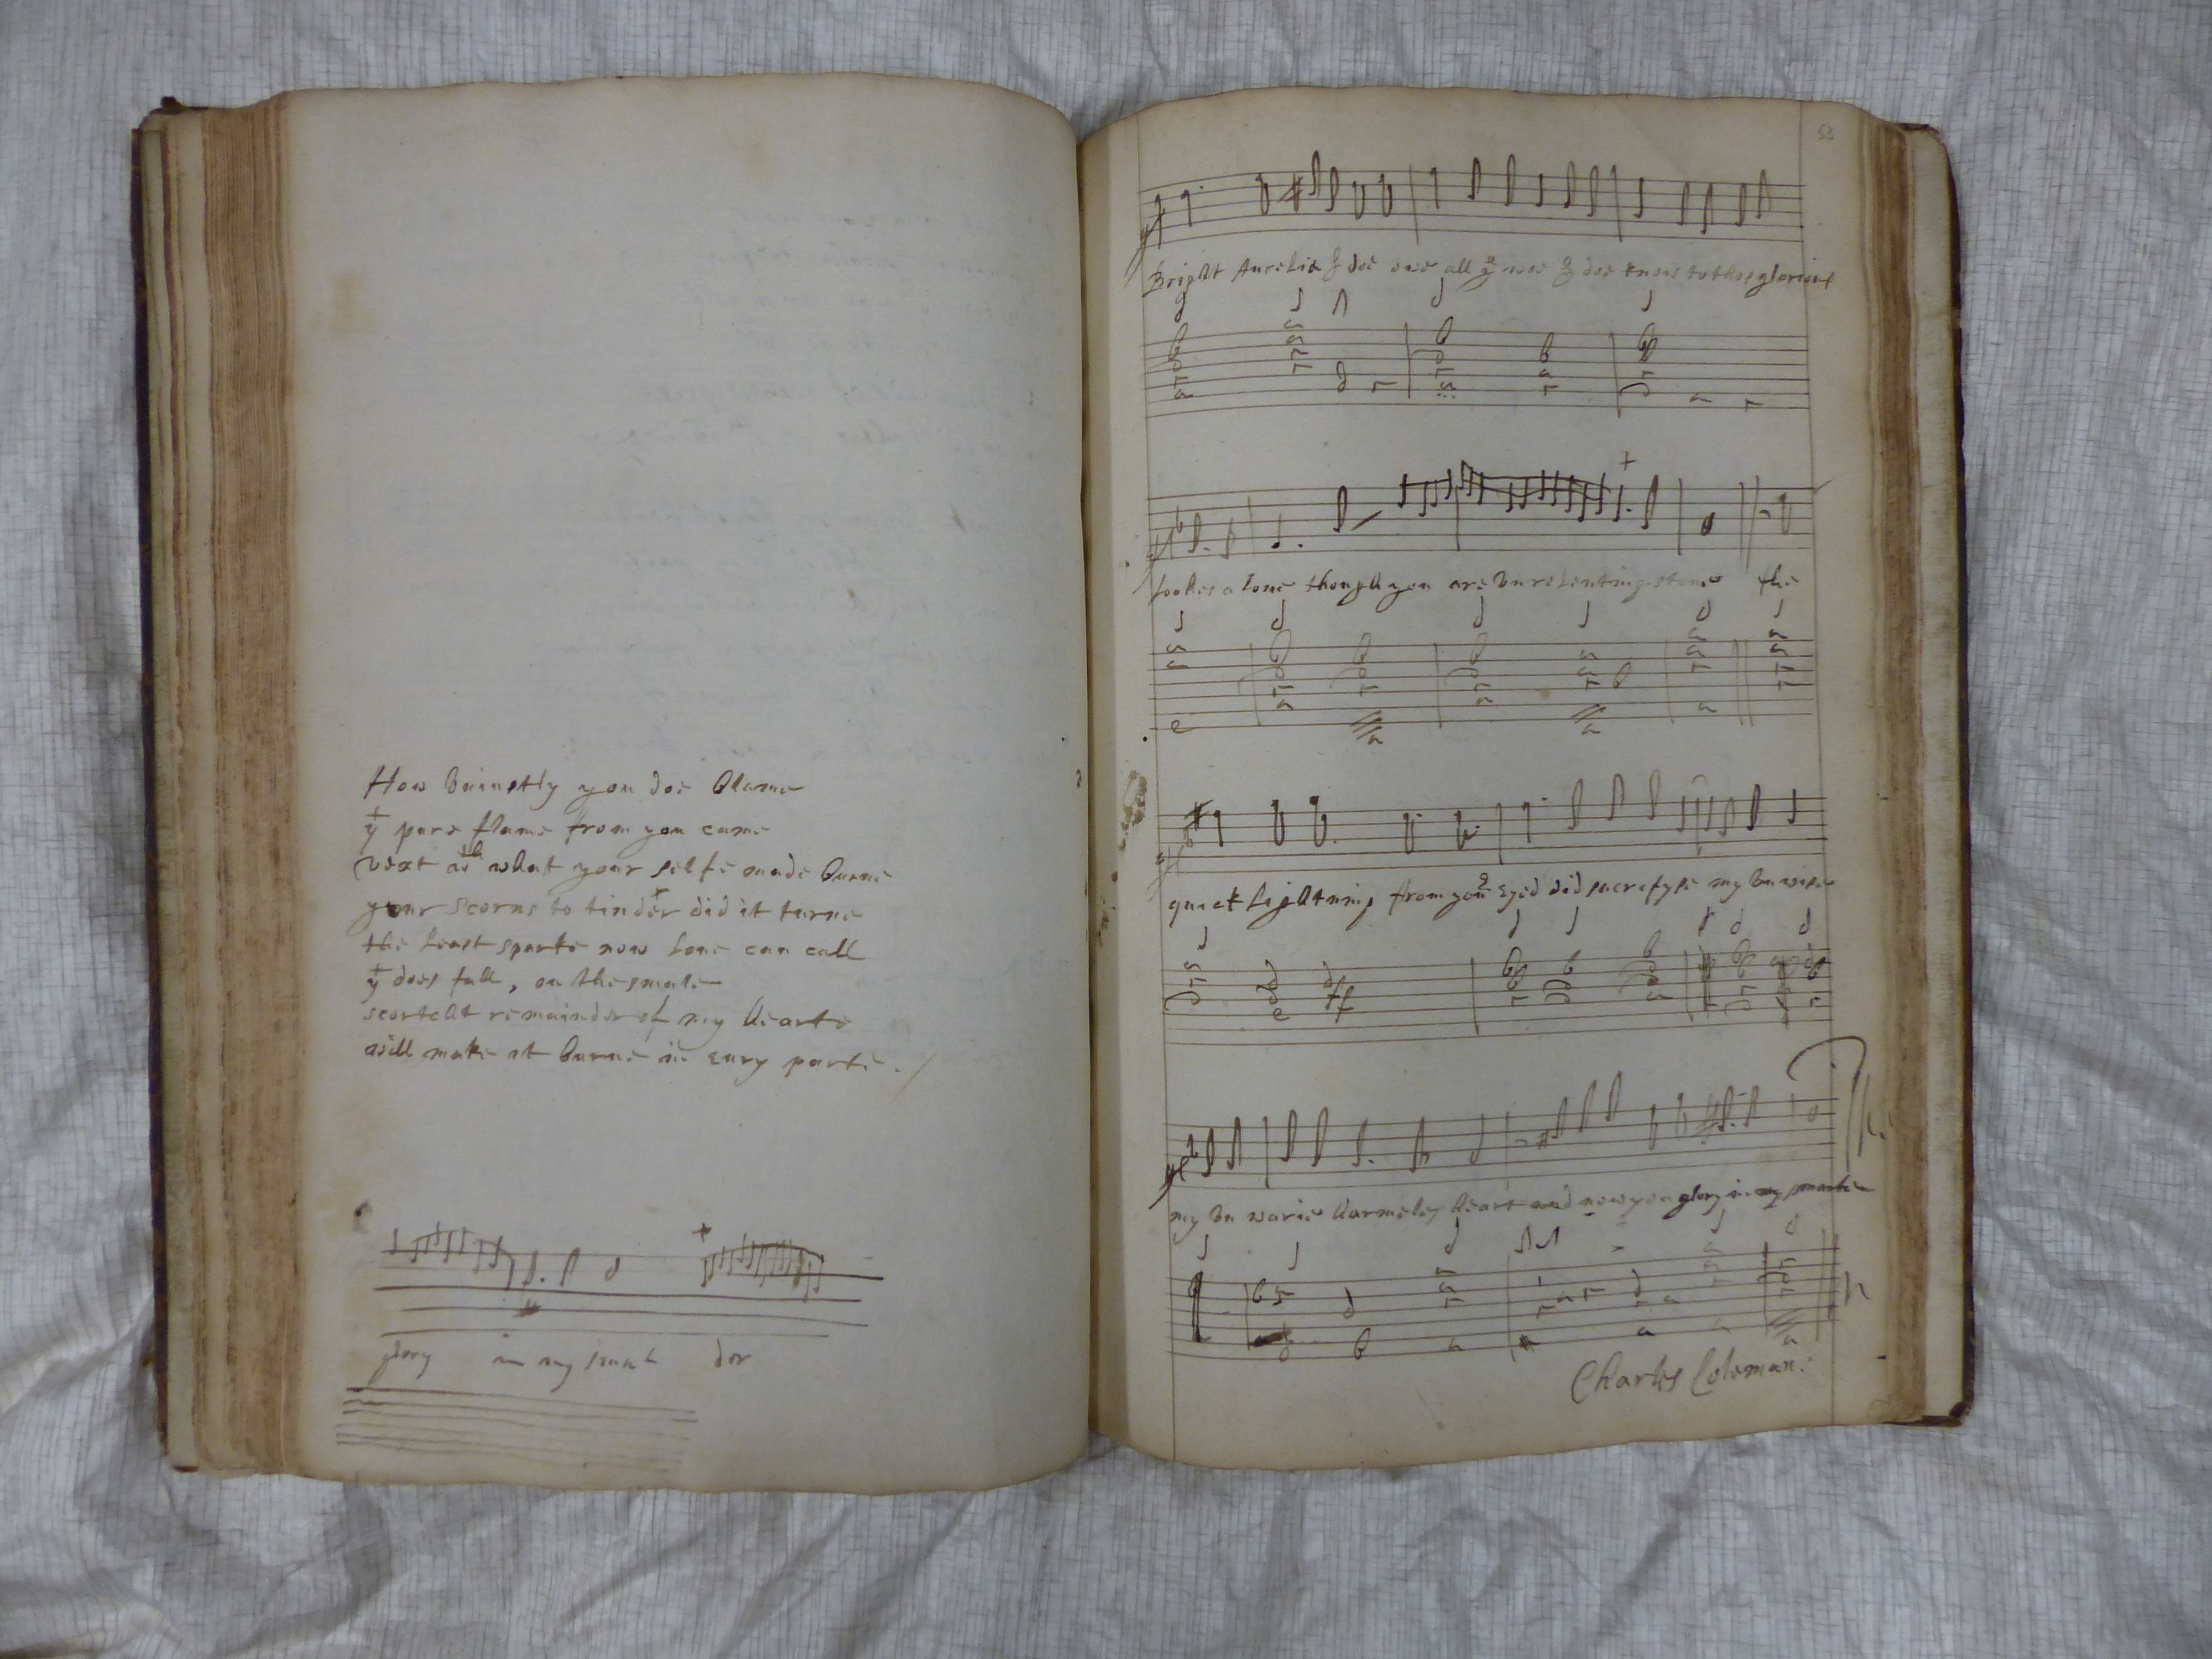 How vniustly you doe blame
yt pure flame from you came
vext wth what your selfe made burne
your scorns to tinder did it turne
the least sparke now loue can call
yt does fall, on the smale
scortcht remainder of my hearte
will make it burne in eury parte.
glory in my smat der
2
Bright Aurelia I doe owe all ye woe I doe know to those glorious
lookes alone though you are vnrelenting stone the
quick lightning from you eyed did sacrifyse my vnwise
my vn warie harmeles heart and now you glory in my smarte
Charles Coleman: